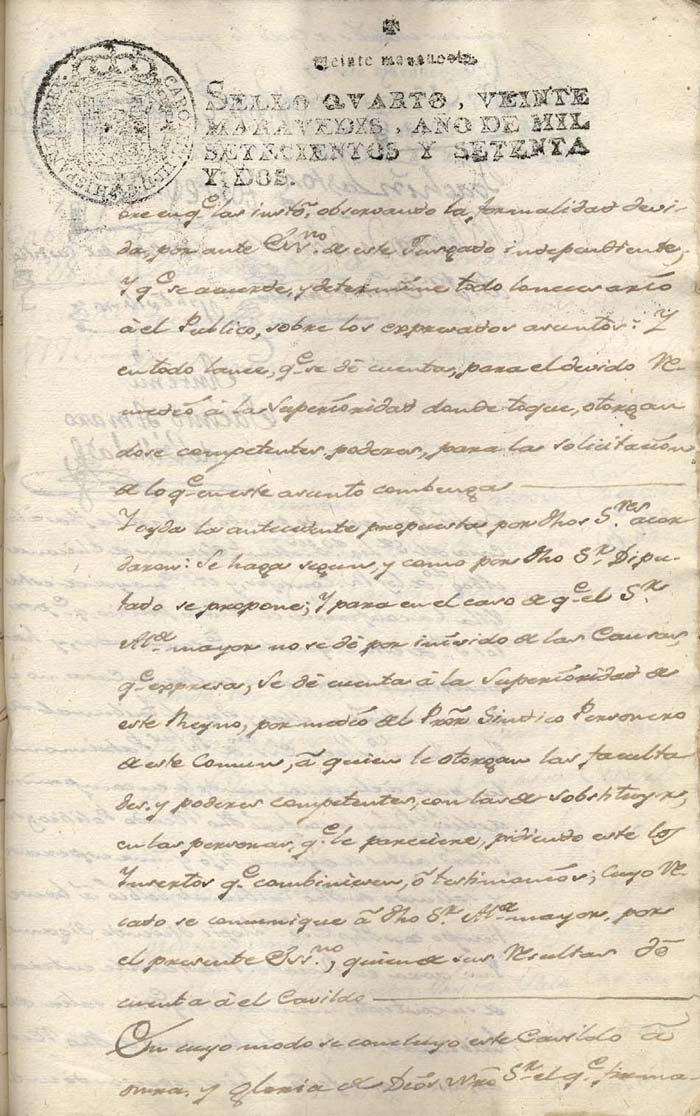 Veinte maravedis.
SELLO QVARTO, VEINTE
MARAVEDIS, AÑO DE MIL
SETECIENTOS Y SETENTA
Y DOS.
CAROLUS III D G HISPANIAR REX
ere en q.e las insto, observando la formalidad devi-
da, por ante Ess.no de este Juzgado independiente,
Y q.e se acuerde, y determine todo lo necesario
â el Publico, sobre los expresados asuntos: Y
en todo lance, q.e se dê cuenta, para el devido Re-
medio â la Superioridad donde toque, otorgan
dose competentes poderes, para las solicitación
de lo q.e en este asunto combenga
Y oyda la antecedente propuesta por dhos S.res acor
daron: Se haga segun, y como por dho S.r Dipu-
tado se propone; Y para en el caso de q.e el S.r
Al.de mayor no se dê por inivido de las Causas,
q.e expresa, Se dê cuenta â la Superioridad de
este Reyno, por medio del Pror Sindico Personero
de este Comun, â quien le otorgan las faculta
des, y poderes competentes, con las de sobstituyrse,
en las personas, q.e le pareciere, pidiendo este los
Insertos q.e combiniesen, ô testimonios; Cuyo Re-
cado se comunique â dho S.r Al.de mayor, por
el presente Ess.no, quien de sus Resultas dê
cuenta â el Cavildo
En cuyo modo se concluyo este Cavildo â
onrra, y gloria de Dios Nro S.r el q.e firma-